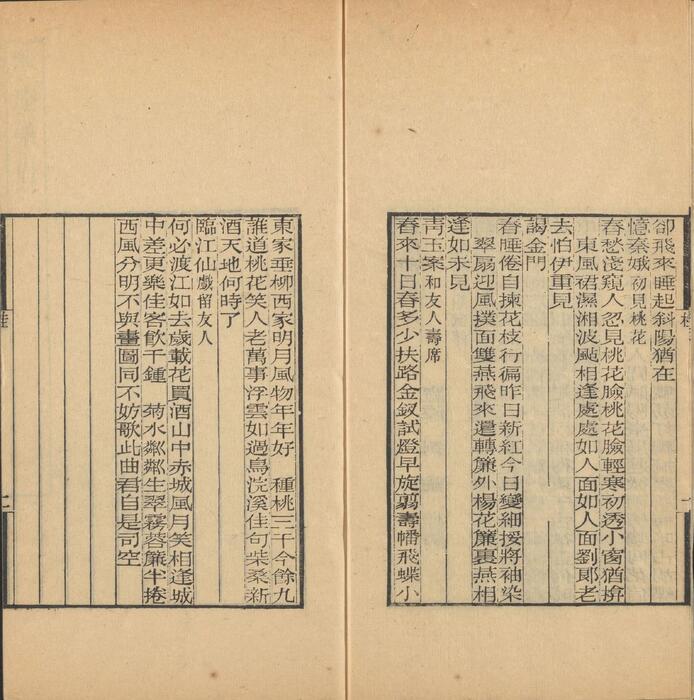 卻飛來睡起斜陽猶在
憶秦娥 初見桃花
春愁淺窺人忽見桃花臉桃花臉輕寒初透小窗猶揜
東風裙濕湘波颭相逢處處如人面如人面劉郞老
去怕伊重見
謁金門
春睡倦自揀花枝行徧昨日新紅今日變細挼將袖染
翠扇迎風撲面雙燕飛來遣轉簾外楊花簾裏燕相
逢如未見
靑玉案 和友人壽席
春來十日春多少扶路金釵試燈早旋翦壽幡飛蝶小
東家垂柳西家明月風物年年好 種桃三千今餘九
誰道桃花笑人老萬事浮雲如過鳥浣溪佳句柴桑新
酒天地何時了
臨江仙 戲留友人
何必渡江如去歲載花買酒山中赤城風月笑相逢城
中差更樂佳客飮千鍾 菊水粼粼生翠霧蓉簾半捲
西風分明不與畫圖同不妨歌此曲君自是司空